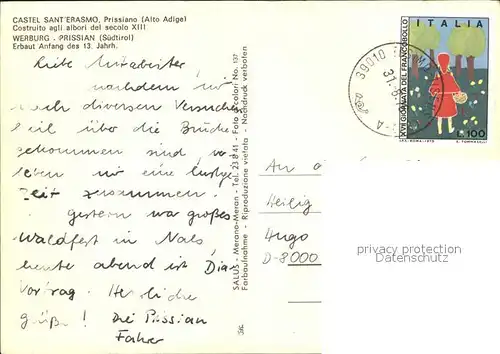 CASTEL SANT'ERASMO, Prissiano (Alto Adige)
Costruito agli albori del secolo XIII
WERBURG - PRISSIAN (Südtirol)
Erbaut Anfang des 13. Jahrh.
Liebe Mitarbeiter
nachdem wir
nach diversen Versuchen
heil über die Brücke
gekommen sind, ver
leben wir eine lustige
Zeit zusammen.
Gestern war großes
Waldfest in Nals
heute abend ist Dia-
Vortrag. Herzliche
Grüße! Die Prissian
Fahrer
SALUS - Merano-Meran - Tel. 23841 - Foto a colori No. 137
Farbaufnahme - Riproduzione vietata - Nachdruck verboten
39010
31.
XVII GIORNATA DEL FRANCOBOLLO
ITALIA
L.100
An
Heilig
Hugo
D-8000
privacy protection